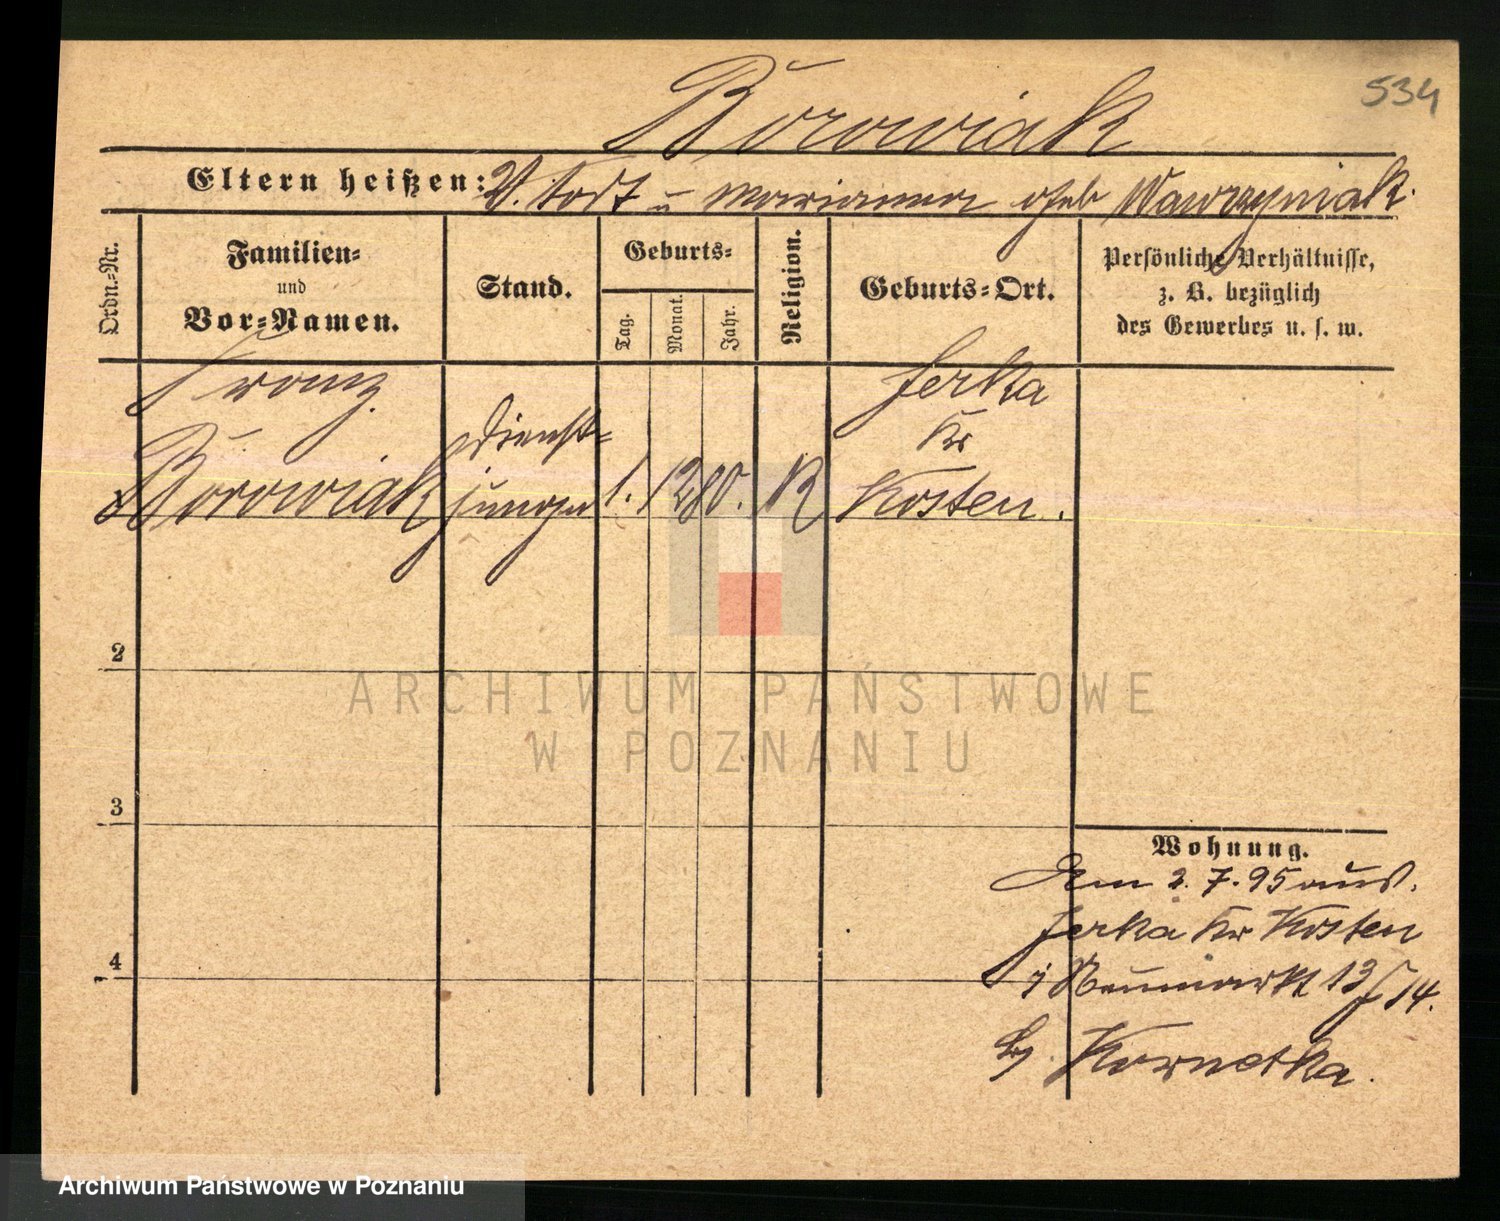 534
Borowiak
Eltern heißen: V. todt u Marianna geb Wawrzyniak.
Ordn.-Nr.
Familien- und Vor-Namen.
Stand.
Geburts-
Tag.
Monat.
Jahr.
Religion.
Geburts-Ort.
Persönliche Verhältnisse,
z. B. bezüglich
des Gewerbes u. s. w.
1
Franz
Borowiak
Dienst-
junge
1. 12 80. K
Jerka
Kr
Kosten.
2
ARCHIWUM PAŃSTWOWE
W POZNANIU
3
Wohnung.
Am 2. 7. 95 aus.
Jerka Kr Kosten
4
Neumarkt 13/14.
by Kornetka.
Archiwum Państwowe w Poznaniu